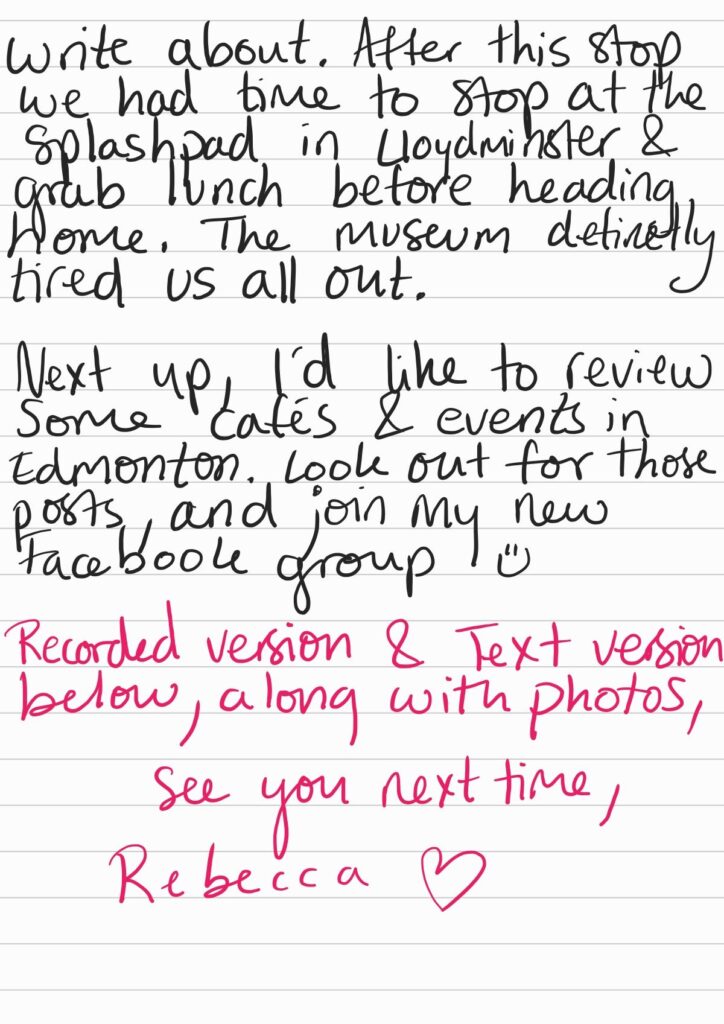 write about. After this stop
we had time to stop at the
splashpad in Lloydminster &
grab lunch before heading
Home. The museum definetly
tired us all out.
Next up, I'd like to review
some cafés & events in
Edmonton. Look out for those
posts, and join my new
Facebook group! ☺
Recorded version & Text version
below, along with photos,
see you next time,
Rebecca ♡